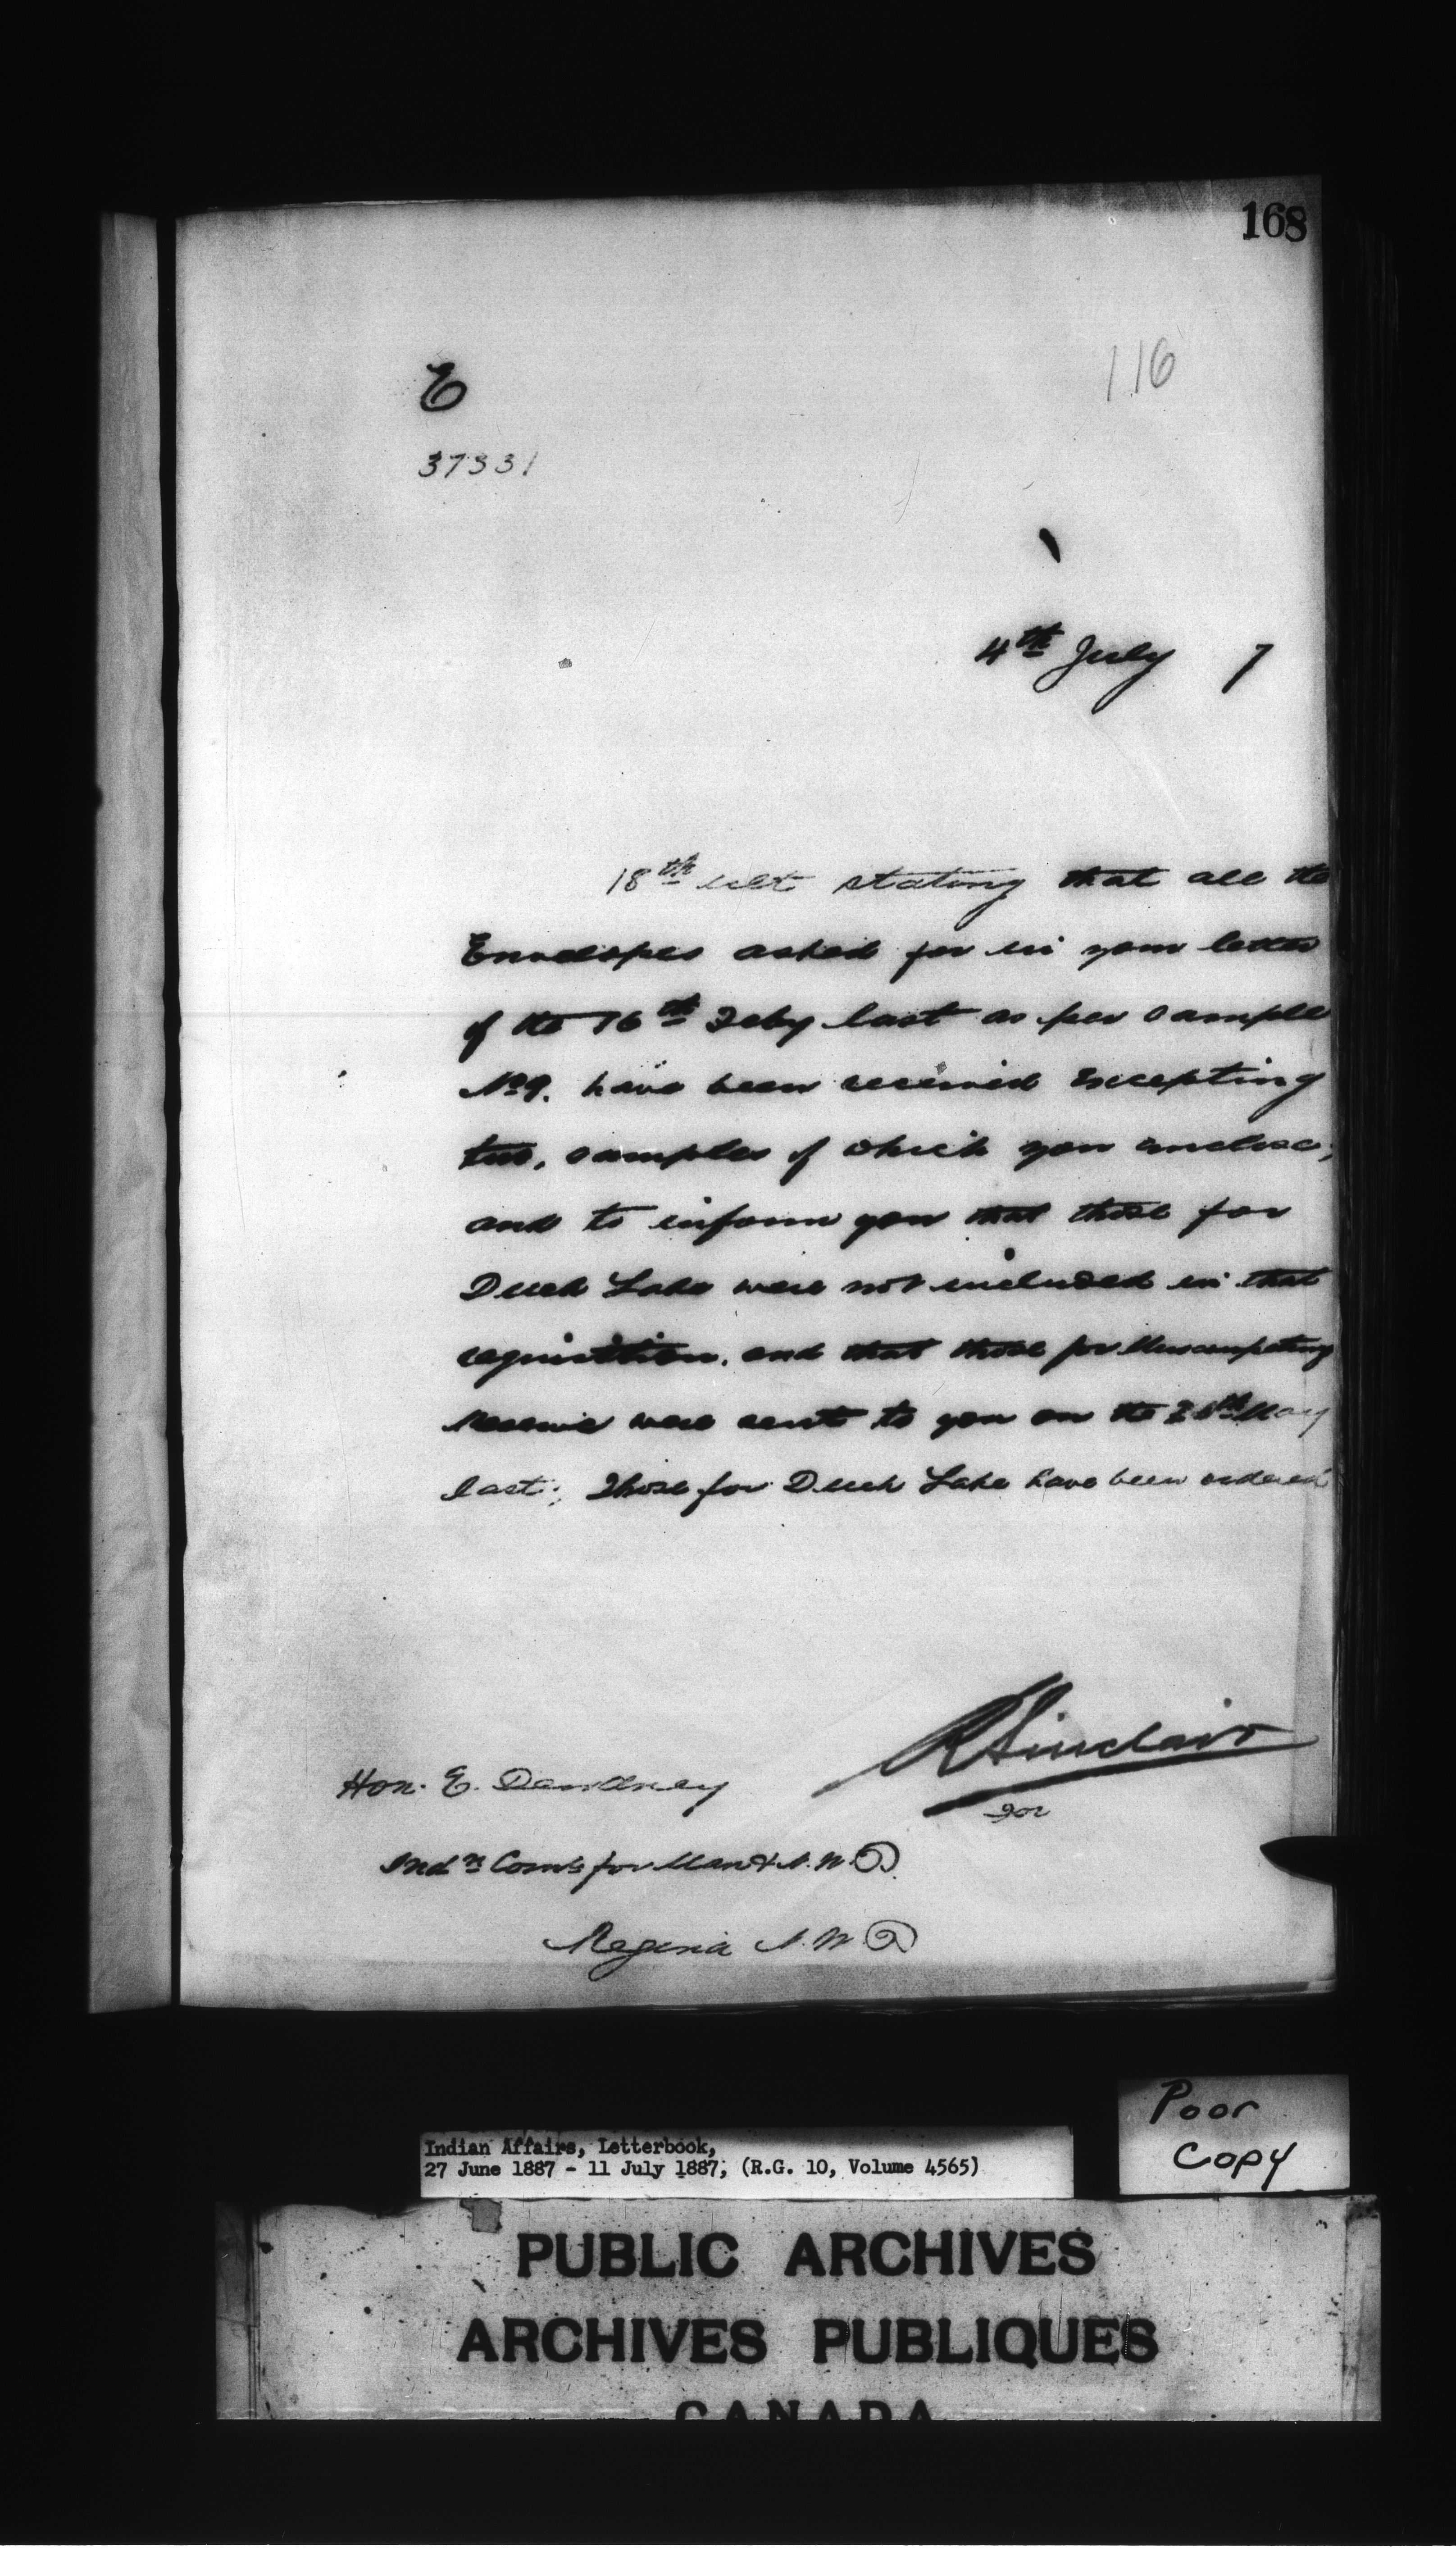 168
116
E
37331
4th July 7
18th ult stating that all the
Envelopes asked for in your letter
of the 16th Feby last as per sample
No 9. have been received excepting
two, samples of which you enclose,
and to inform you that those for
Duck Lake were not included in that
requisition, and that those for Muscowpetung
Reserve were sent to you on the May
last; Those for Duck Lake have been ordered
R Sinclair
for
Hon. E. Dewdney
Indn Comr for Man & N.W.T.
Regina N.W.T
Poor
Copy
Indian Affairs, Letterbook,
27 June 1887 - 11 July 1887, (R.G. 10, Volume 4565)
PUBLIC ARCHIVES
ARCHIVES PUBLIQUES
CANADA